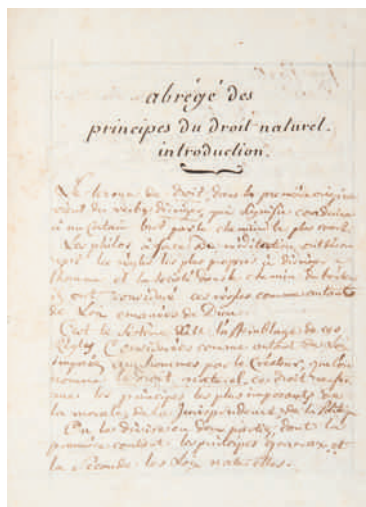 abrégé des
principes du droit naturel.
introduction.
Le terme de droit, dans sa première origine
vient du verbe diriger, qui signifie conduire
à un certain but par le chemin le plus court.
Les philos à force de méditation, ont
les règles les plus propres à diriger
l'homme et la société dans le chemin du
ont considéré ces règles comme autant
de Loix emanées de Dieu.
C'est le l'assemblage de ces
Règles Considérées comme autant de
aux hommes par le Créateur, que l'on
nomme le droit naturel. ce droit
les principes les plus imposants de
la morale, de la Jurisprudence, de la Politique
On les divise en deux parties, dont la
première contient les principes généraux, et
la Seconde les Loix naturelles.